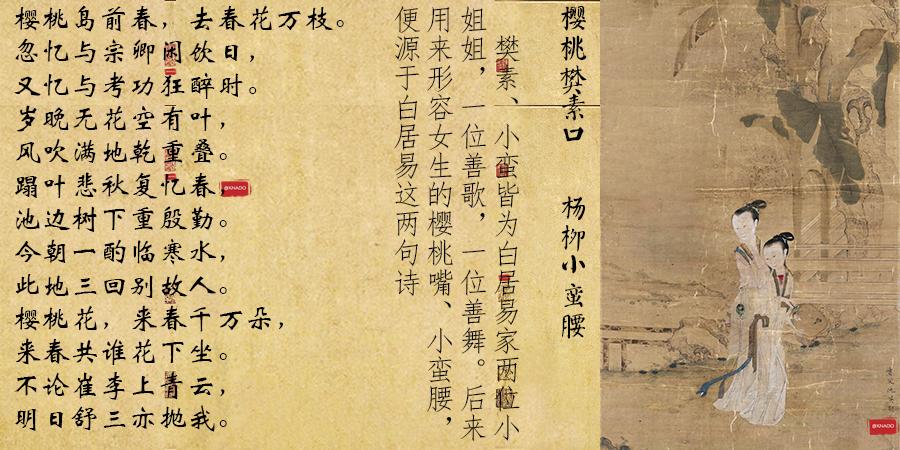 樱桃岛前春，去春花万枝。
忽忆与宗卿闲饮日，
又忆与考功狂醉时。
岁晚无花空有叶，
风吹满地乾重叠。
蹋叶悲秋复忆春，
池边树下重殷勤。
今朝一酌临寒水，
此地三回别故人。
樱桃花，来春千万朵，
来春共谁花下坐。
不论崔李上青云，
明日舒三亦抛我。
樱桃樊素口 杨柳小蛮腰
樊素、小蛮皆为白居易家两位小
姐姐，一位善歌，一位善舞。后来
用来形容女生的樱桃嘴、小蛮腰，
便源于白居易这两句诗
@XNADO
@XNADO